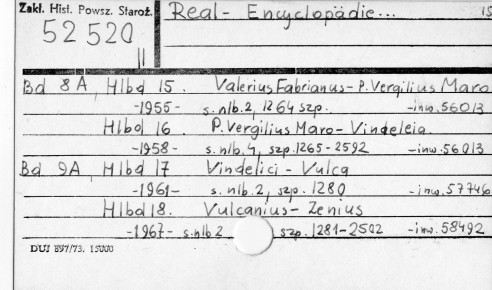 Zakł. Hist. Powsz. Staroż.
Real-Encyclopädie...
15
52 520
II
Bd 8A, Hlbd 15. Valerius Fabrianus-P. Vergilius Maro
-1955- s. nlb. 2, 1264 szp. -inw. 56013
Hlbd 16 P. Vergilius Maro-Vindeleia
-1958- s. nlb. 4, szp. 1265-2592 -inw. 56013
Bd 9A, Hlbd 17 Vindelici-Vulca
-1961- s. nlb. 2, szp. 1280 -inw. 57746
Hlbd 18. Vulcanius-Zenius
-1967- s. nlb 2 szp. 1281-2502 -inw. 58492
DUJ 897/73. 15000